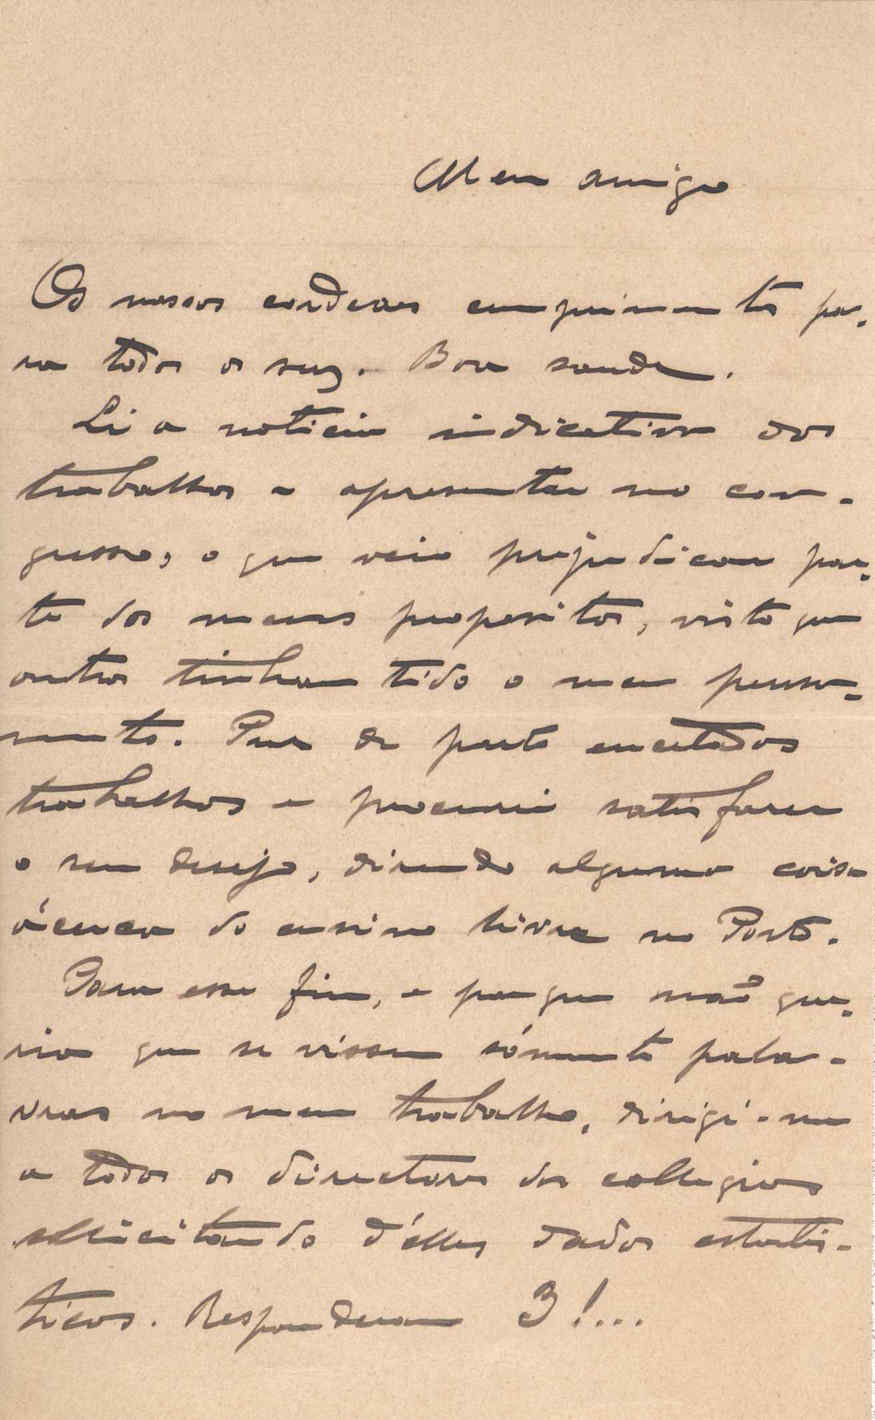 Meu amigo
Os nossos cordeaes cumprimentos pa-
ra todos os seus. Boa saude.
Li a noticia indicativa dos
trabalhos a apresentar no con-
gresso, o que veio prejudicar par-
te dos meus propositos, visto que
outros tinham tido o meu pensa-
mento. Puz de parte encetados
trabalhos e procurei satisfazer
o seu desejo, dizendo alguma coisa
ácerca do ensino livre no Porto.
Para esse fim, e porque não que-
ria que se vissem sómente pala-
vras no meu trabalho, dirigi-me
a todos os directores dos collegios
sollicitando d'elles dados estatis-
ticos. Responderam 3!...